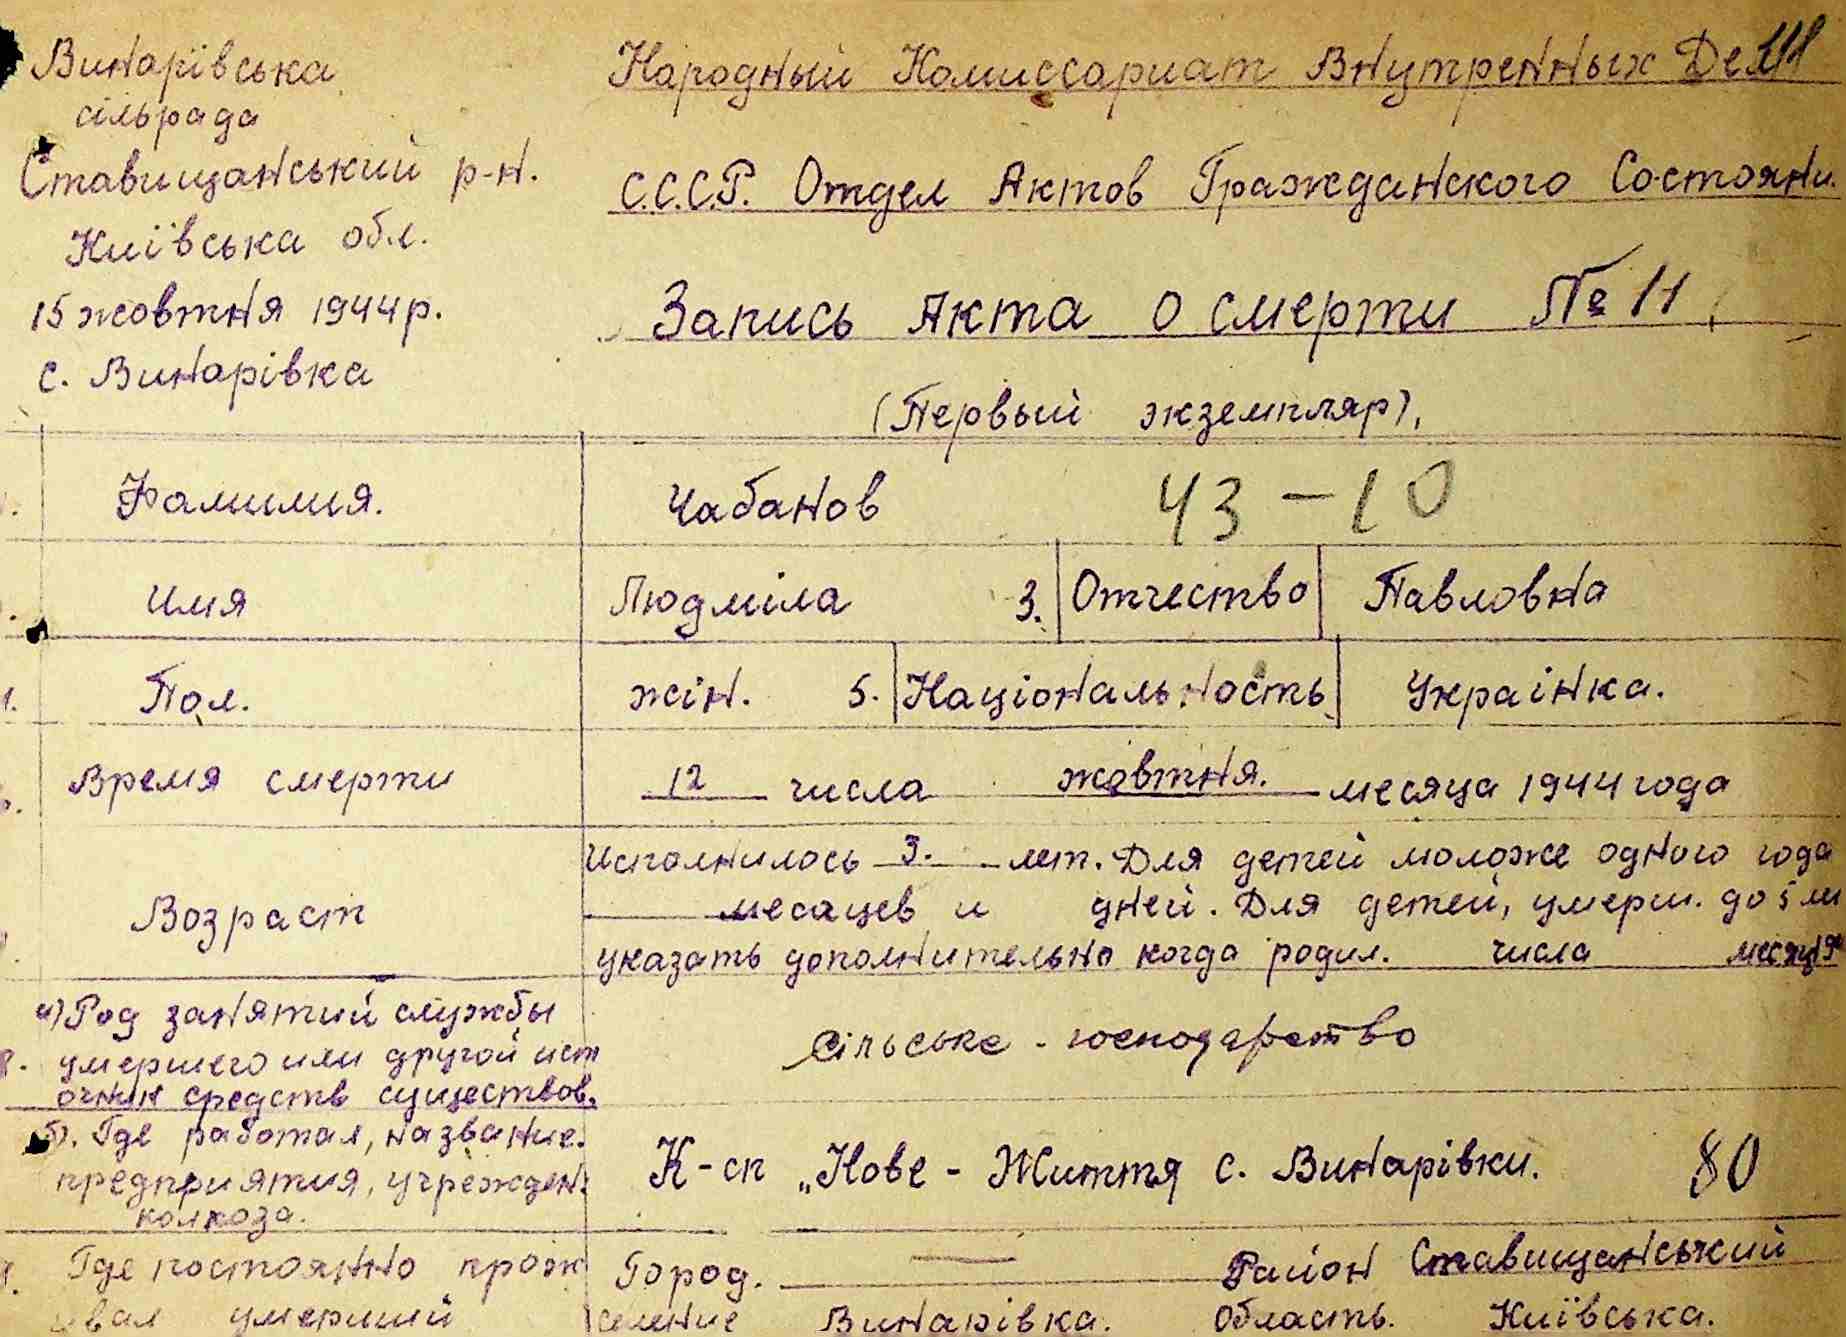 Винарївська
сільрада
Ставищанський р-н.
Київська обл.
15 жовтня 1944 р.
с. Винарівка
Народный Комиссариат Внутренных Дел
С.С.С.Р. Отдел Актов Гражданского Состояни.
Запись Акта о смерти № 11
(Первый экземпляр),
Фамилия. Чабанов 43-10
Имя Людміла 3. Отчество Павловна
Пол. жін. 5. Національность Украінка.
Время смерти 12 числа жовтня. месяца 1944 года
Возраст
Исполнилось 3. лет. Для детей моложе одного года
месацев и дней. Для детей, умерш. до 5 ли
указать дополнительно когда родил. числа месяця
а) Род занятий службы
8. умершего или другой ист
очник средств существов.
сільське - господарство
б). Где работал, название.
предприятия, учрежден.
колхоза.
К-сп „Нове - Життя с. Винарівки. 80
Где постоянно прож Город. — Район Ставищанський
вал умерший селение Винарівка. Область. Київська.